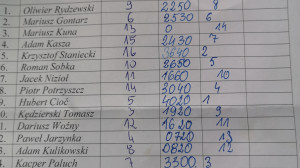 1. Oliwier Rydzewski 9 2250 8
2. Mariusz Gontarz 6 2530 6
3. Mariusz Kuna 13 0 14
4. Adam Kasza 15 2430 7
5. Krzysztof Staniecki 16 2
6. Roman Sobka 10 2650 5
7. Jacek Nizioł 11 1660 10
8. Piotr Potrzyszcz 14 3040 4
9. Hubert Cioć 5 4020 1
0. Kędzierski Tomasz 3 1920 9
1. Dariusz Woźny 12 1620 11
2. Paweł Jarzynka 4 0720 13
3. Adam Kulikowski 8 0820 12
4. Kacper Paluch 7 3300 3